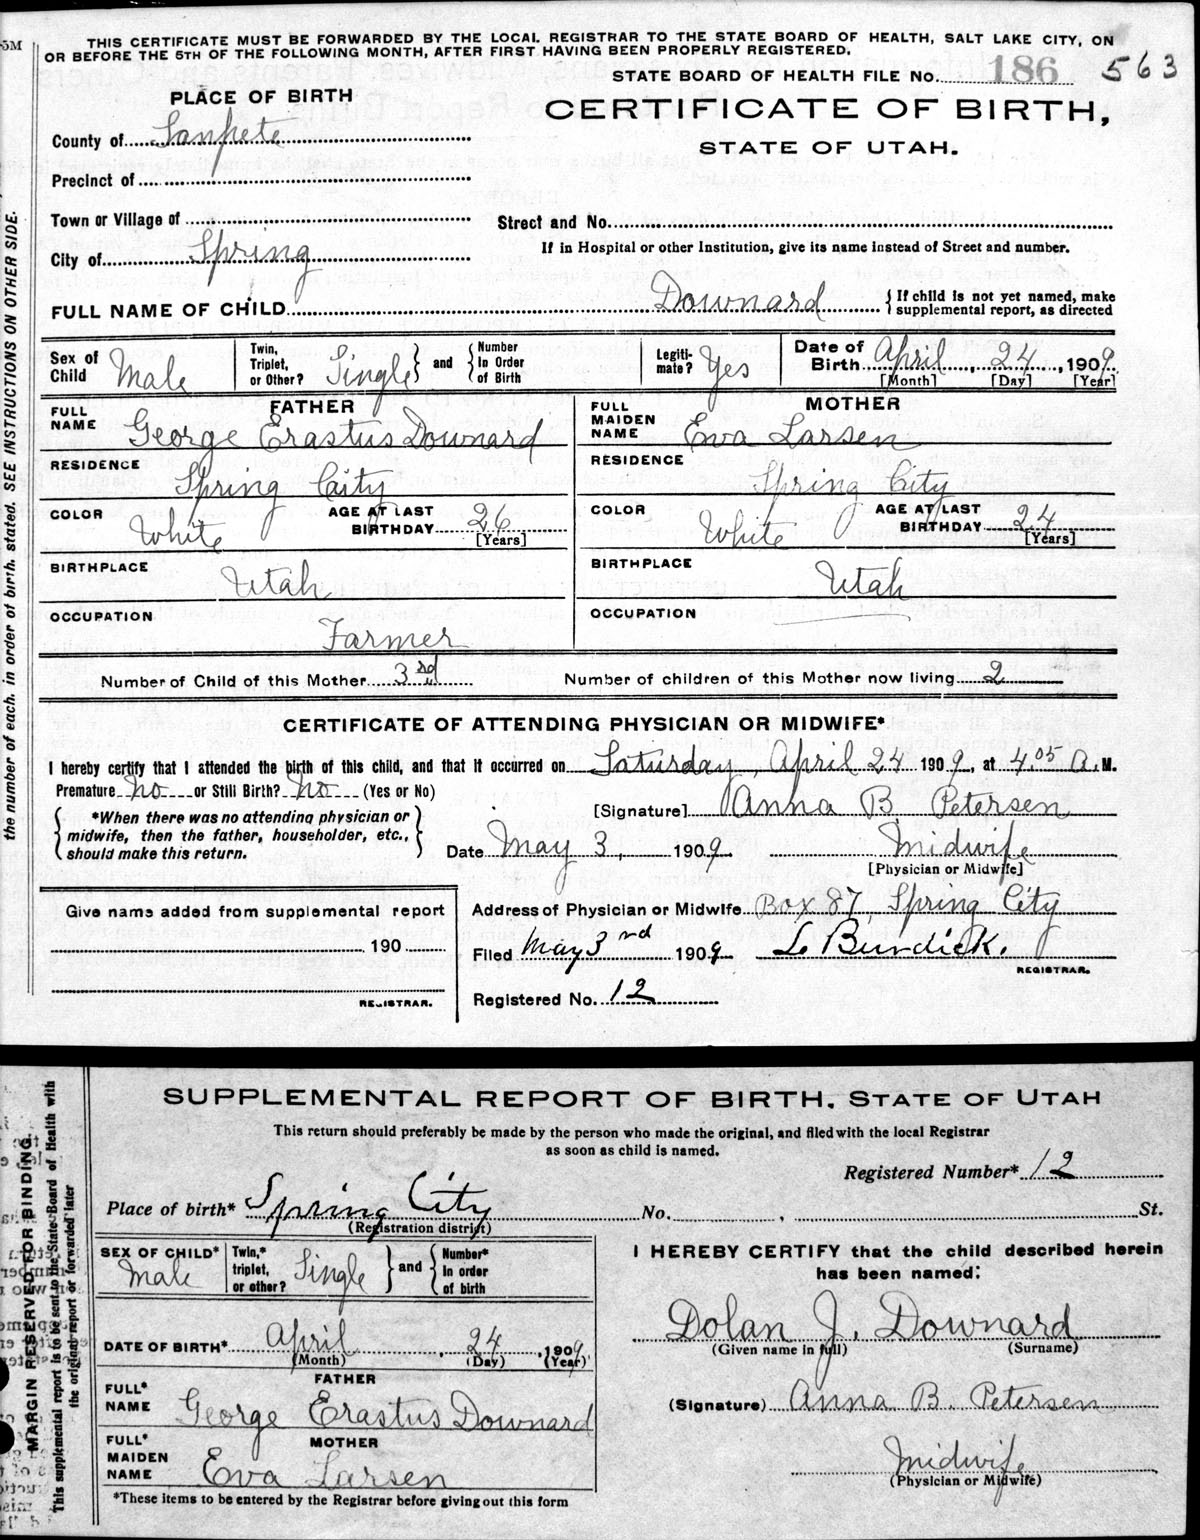 5M
THIS CERTIFICATE MUST BE FORWARDED BY THE LOCAL REGISTRAR TO THE STATE BOARD OF HEALTH, SALT LAKE CITY, ON
OR BEFORE THE 5TH OF THE FOLLOWING MONTH, AFTER FIRST HAVING BEEN PROPERLY REGISTERED.
STATE BOARD OF HEALTH FILE No. 186 563
PLACE OF BIRTH
CERTIFICATE OF BIRTH,
STATE OF UTAH.
County of Sanpete
Precinct of
Town or Village of
Street and No.
City of Spring
If in Hospital or other Institution, give its name instead of Street and number.
FULL NAME OF CHILD Downard { If child is not yet named, make
supplemental report, as directed
Sex of Child Male
Twin, Triplet, or Other? Single } and { Number In Order of Birth
Legiti-mate? Yes
Date of Birth April, 24, 1909.
[Month] [Day] [Year]
FATHER
FULL NAME George Erastus Downard
MOTHER
FULL MAIDEN NAME Eva Larsen
RESIDENCE Spring City
RESIDENCE Spring City
COLOR White AGE AT LAST BIRTHDAY 26 [Years]
COLOR White AGE AT LAST BIRTHDAY 24 [Years]
BIRTHPLACE Utah
BIRTHPLACE Utah
OCCUPATION Farmer
OCCUPATION
Number of Child of this Mother 3rd Number of children of this Mother now living 2
CERTIFICATE OF ATTENDING PHYSICIAN OR MIDWIFE*
I hereby certify that I attended the birth of this child, and that it occurred on Saturday, April 24 1909, at 4.05 A.M.
Premature No or Still Birth? No (Yes or No)
[Signature] Anna B. Petersen
{ *When there was no attending physician or
midwife, then the father, householder, etc.,
should make this return. }
Date May 3, 1909. Midwife
[Physician or Midwife]
Give name added from supplemental report
190
REGISTRAR.
Address of Physician or Midwife Box 87, Spring City
Filed May 3rd 1909. L Burdick.
REGISTRAR.
Registered No. 12
the number of each, in order of birth, stated. SEE INSTRUCTIONS ON OTHER SIDE.
SUPPLEMENTAL REPORT OF BIRTH, STATE OF UTAH
This return should preferably be made by the person who made the original, and filed with the local Registrar
as soon as child is named.
Registered Number* 12
Place of birth* Spring City No. , St.
(Registration district)
SEX OF CHILD* Male
Twin,* triplet, or other? Single } and { Number* In order of birth
DATE OF BIRTH* April, 24, 1909
(Month) (Day) (Year)
FATHER
FULL* NAME George Erastus Downard
MOTHER
FULL* MAIDEN NAME Eva Larsen
*These items to be entered by the Registrar before giving out this form
I HEREBY CERTIFY that the child described herein
has been named:
Dolan J. Downard
(Given name in full) (Surname)
(Signature) Anna B. Petersen
Midwife
(Physician or Midwife)
MARGIN RESERVED FOR BINDING.
This supplemental report is to be sent to the State Board of Health with
the original report or forwarded later